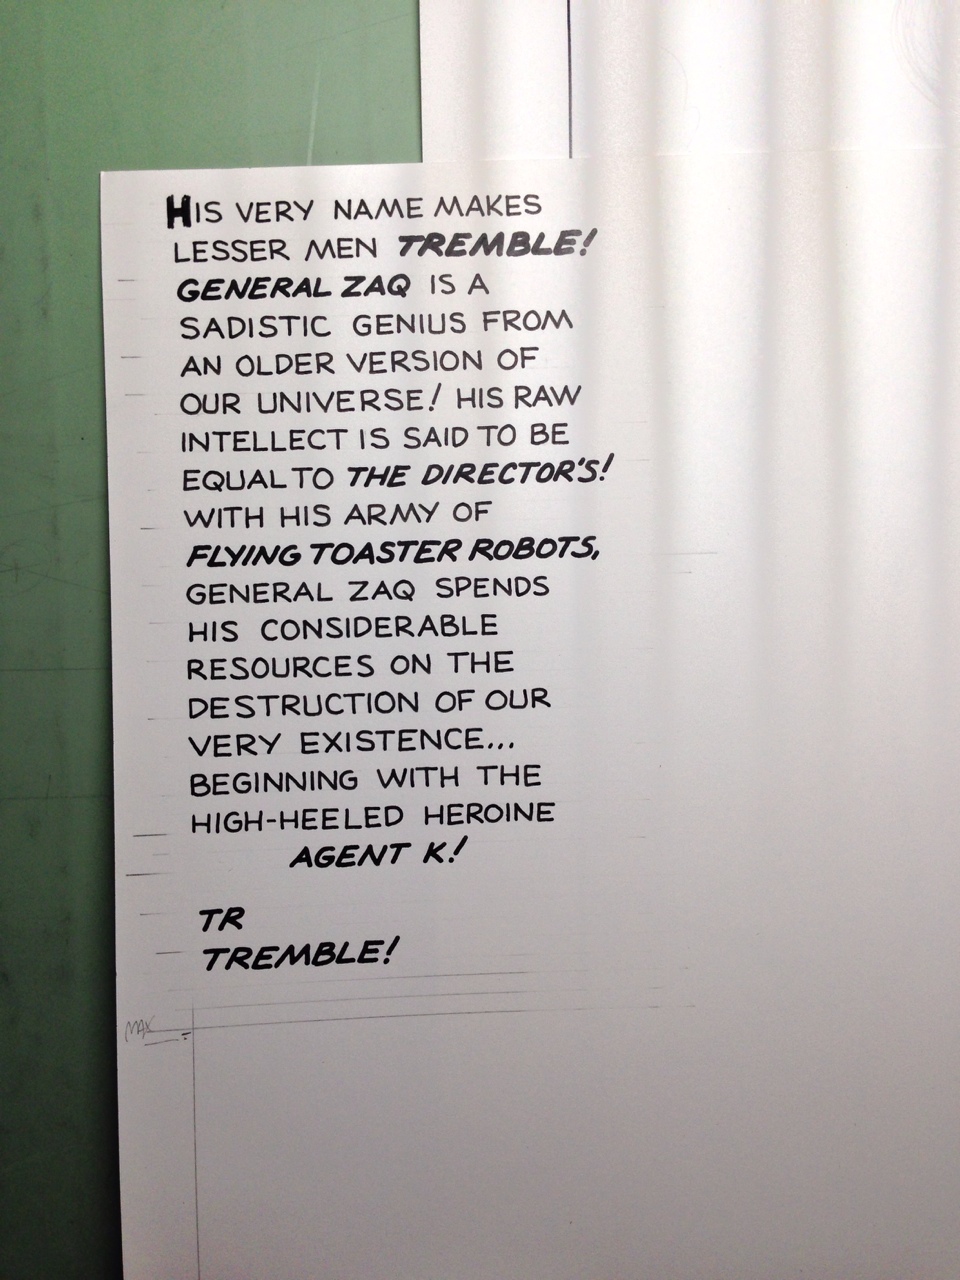 HIS VERY NAME MAKES
LESSER MEN TREMBLE!
GENERAL ZAQ IS A
SADISTIC GENIUS FROM
AN OLDER VERSION OF
OUR UNIVERSE! HIS RAW
INTELLECT IS SAID TO BE
EQUAL TO THE DIRECTOR'S!
WITH HIS ARMY OF
FLYING TOASTER ROBOTS,
GENERAL ZAQ SPENDS
HIS CONSIDERABLE
RESOURCES ON THE
DESTRUCTION OF OUR
VERY EXISTENCE...
BEGINNING WITH THE
HIGH-HEELED HEROINE
AGENT K!
TR
TREMBLE!
MAX